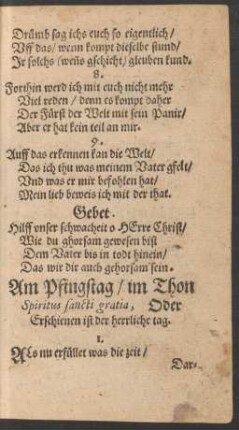 Drümb sag ichs euch so eigentlich/
Vff das/ wenn kompt dieselbe stund/
Ir solchs (weñs gschicht) gleuben kund.
8.
Forthin werd ich mit euch nicht mehr
Viel reden/ denn es kompt daher
Der Fürst der Welt mit sein Panir/
Aber er hat kein teil an mir.
9.
Auff das erkennen kan die Welt/
Das ich thu was meinem Vater gfelt/
Vnd was er mir befohlen hat/
Mein lieb beweis ich mit der that.
Gebet.
Hilff vnser schwacheit o HErre Christ/
Wie du ghorsam gewesen bist
Dem Vater bis in todt hinein/
Das wir dir auch gehorsam sein.
Am Pfingstag/ im Thon
Spiritus sancti gratia, Oder
Erschienen ist der herrliche tag.
1.
ALs nu erfüllet was die zeit/
Dar-